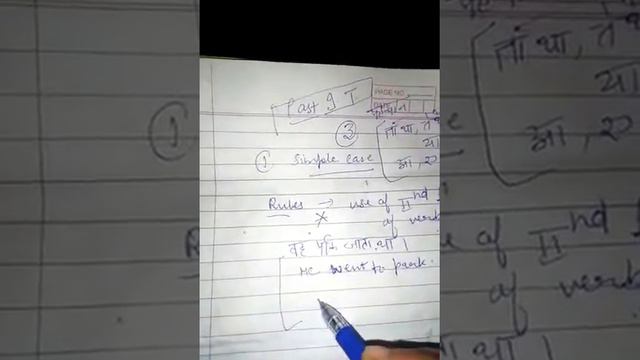 Past I T
PAGE NO.
③
ता था, ते
या
आ,
① Simple case
Rules → use of IInd
of verb
वह पार्क जाता था।
He went to park.